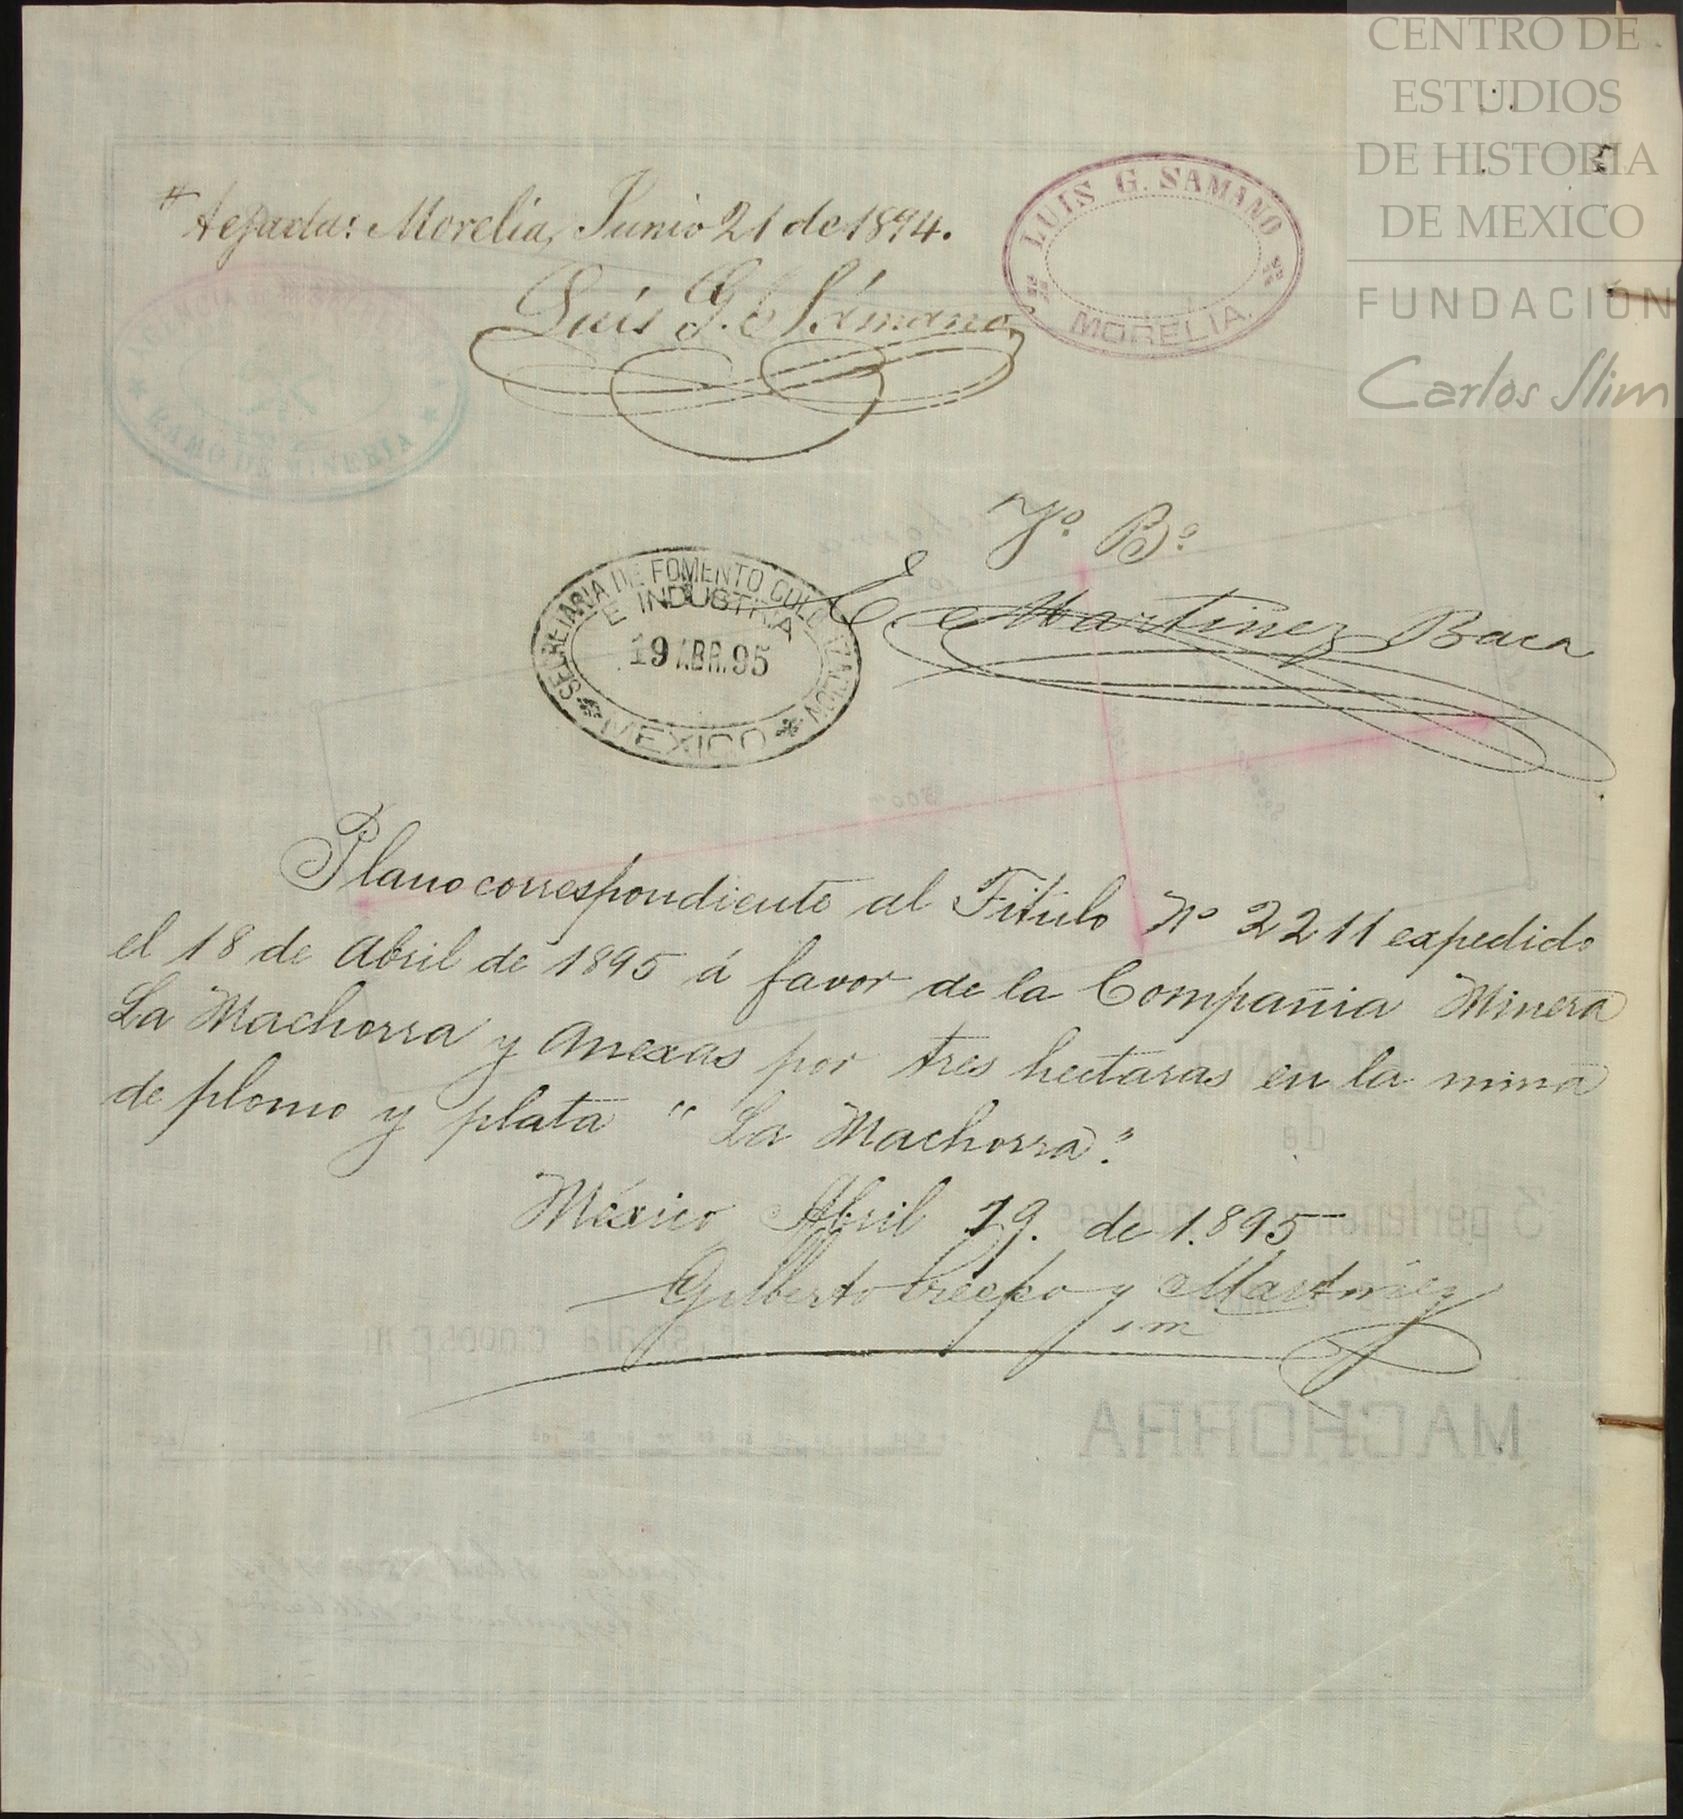 CENTRO DE
ESTUDIOS
DE HISTORIA
DE MEXICO
FUNDACIÓN
Carlos Slim
Morelia, Junio 21 de 1894.
LUIS G. SAMANO
MORELIA.
Luis G. Sámano
RAMO DE MINERIA
Vº Bº
E. Martinez Baca
SECRETARIA DE FOMENTO COLONIZACION
E INDUSTRIA
19 ABR. 95
MEXICO
Plano correspondiente al Titulo Nº 2211 expedido
el 18 de Abril de 1895 á favor de la Compañia Minera
La Machorra y Anexas por tres hectaras en la mina
de plomo y plata "La Machorra."
México Abril 19. de 1.895
Gilberto Crespo y Martínez
PLANO
de
3 pertenencias
MACHORRA